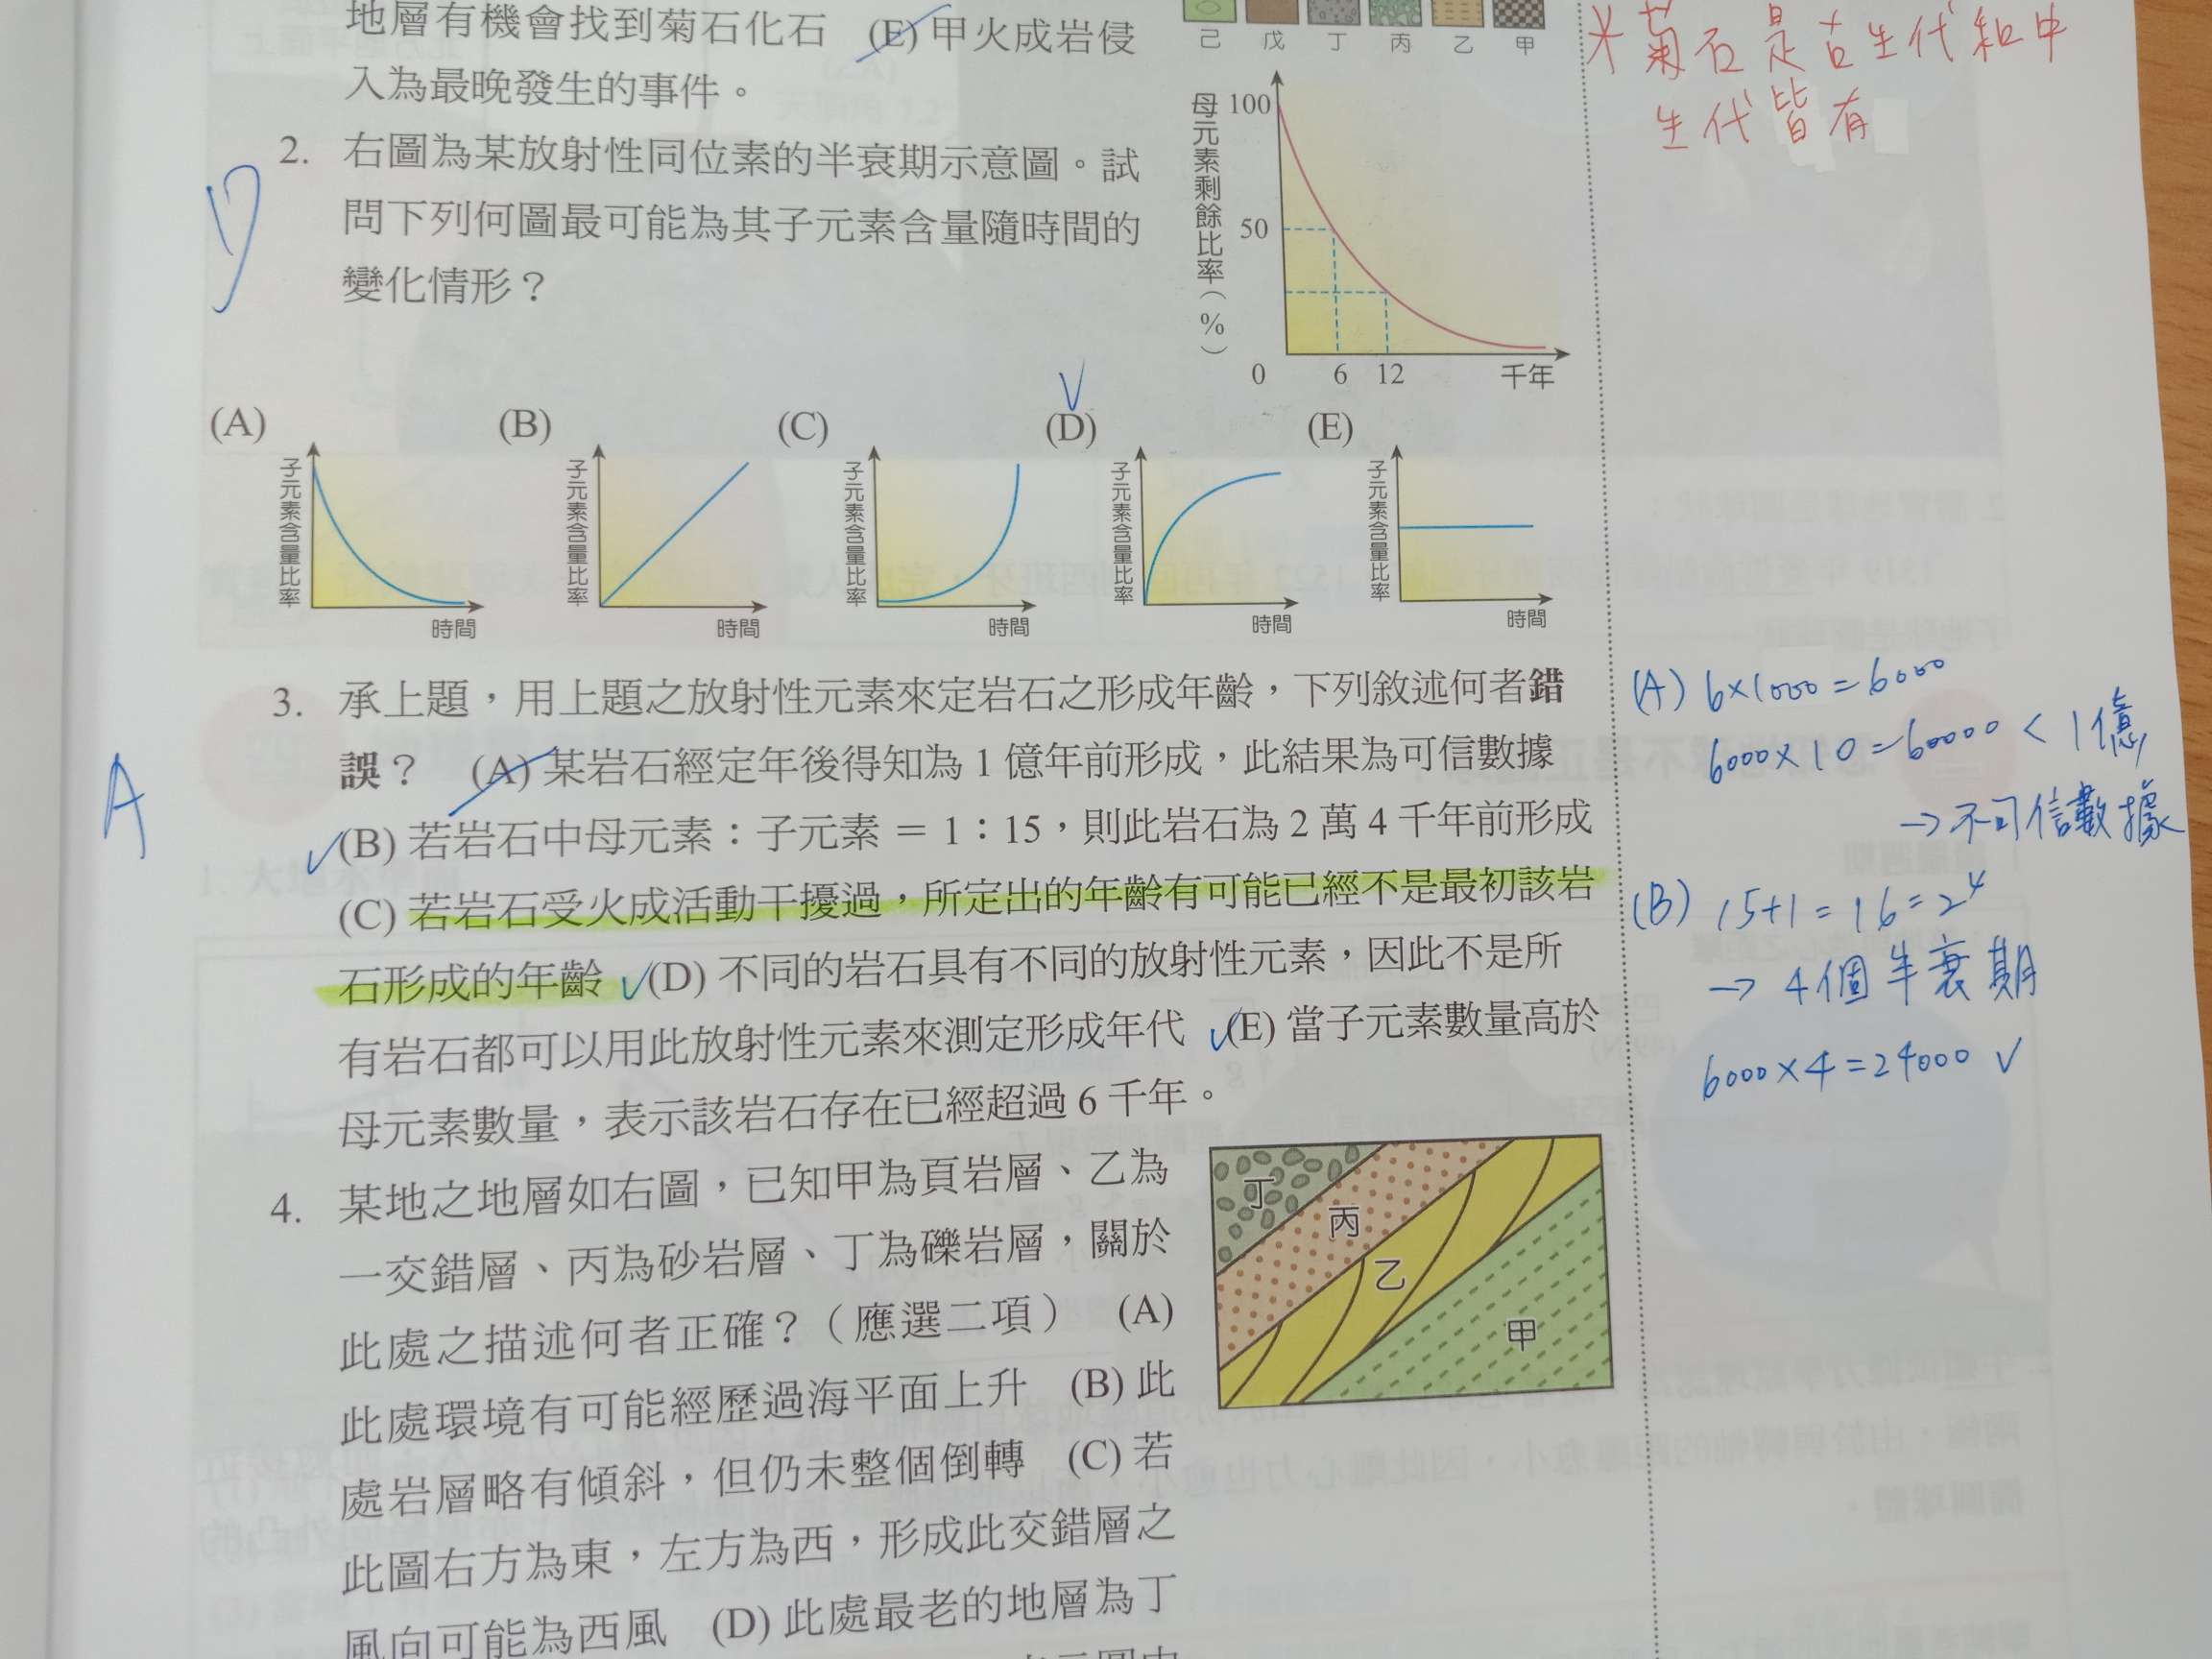 地層有機會找到菊石化石 (E) 甲火成岩侵
入為最晚發生的事件。
己 戊 丁 丙 乙 甲
米菊石是古生代和中
生代皆有
2. 右圖為某放射性同位素的半衰期示意圖。試
問下列何圖最可能為其子元素含量隨時間的
變化情形？
D
母元素剩餘比率(%)
100
50
0 6 12 千年
(A) (B) (C) (D) (E)
子元素含量比率 時間
子元素含量比率 時間
子元素含量比率 時間
子元素含量比率 時間
子元素含量比率 時間
3. 承上題，用上題之放射性元素來定岩石之形成年齡，下列敘述何者錯
誤？ (A) 某岩石經定年後得知為 1 億年前形成，此結果為可信數據
(B) 若岩石中母元素：子元素 = 1：15，則此岩石為 2 萬 4 千年前形成
(C) 若岩石受火成活動干擾過，所定出的年齡有可能已經不是最初該岩
石形成的年齡 (D) 不同的岩石具有不同的放射性元素，因此不是所
有岩石都可以用此放射性元素來測定形成年代 (E) 當子元素數量高於
母元素數量，表示該岩石存在已經超過 6 千年。
A
(A) 6×1000=6000
6000×10=60000 < 1億
→不可信數據
(B) 15+1=16=2⁴
→ 4個半衰期
6000×4=24000 ✓
4. 某地之地層如右圖，已知甲為頁岩層、乙為
一交錯層、丙為砂岩層、丁為礫岩層，關於
此處之描述何者正確？（應選二項） (A)
此處環境有可能經歷過海平面上升 (B) 此
處岩層略有傾斜，但仍未整個倒轉 (C) 若
此圖右方為東，左方為西，形成此交錯層之
風向可能為西風 (D) 此處最老的地層為丁
丁
丙
乙
甲